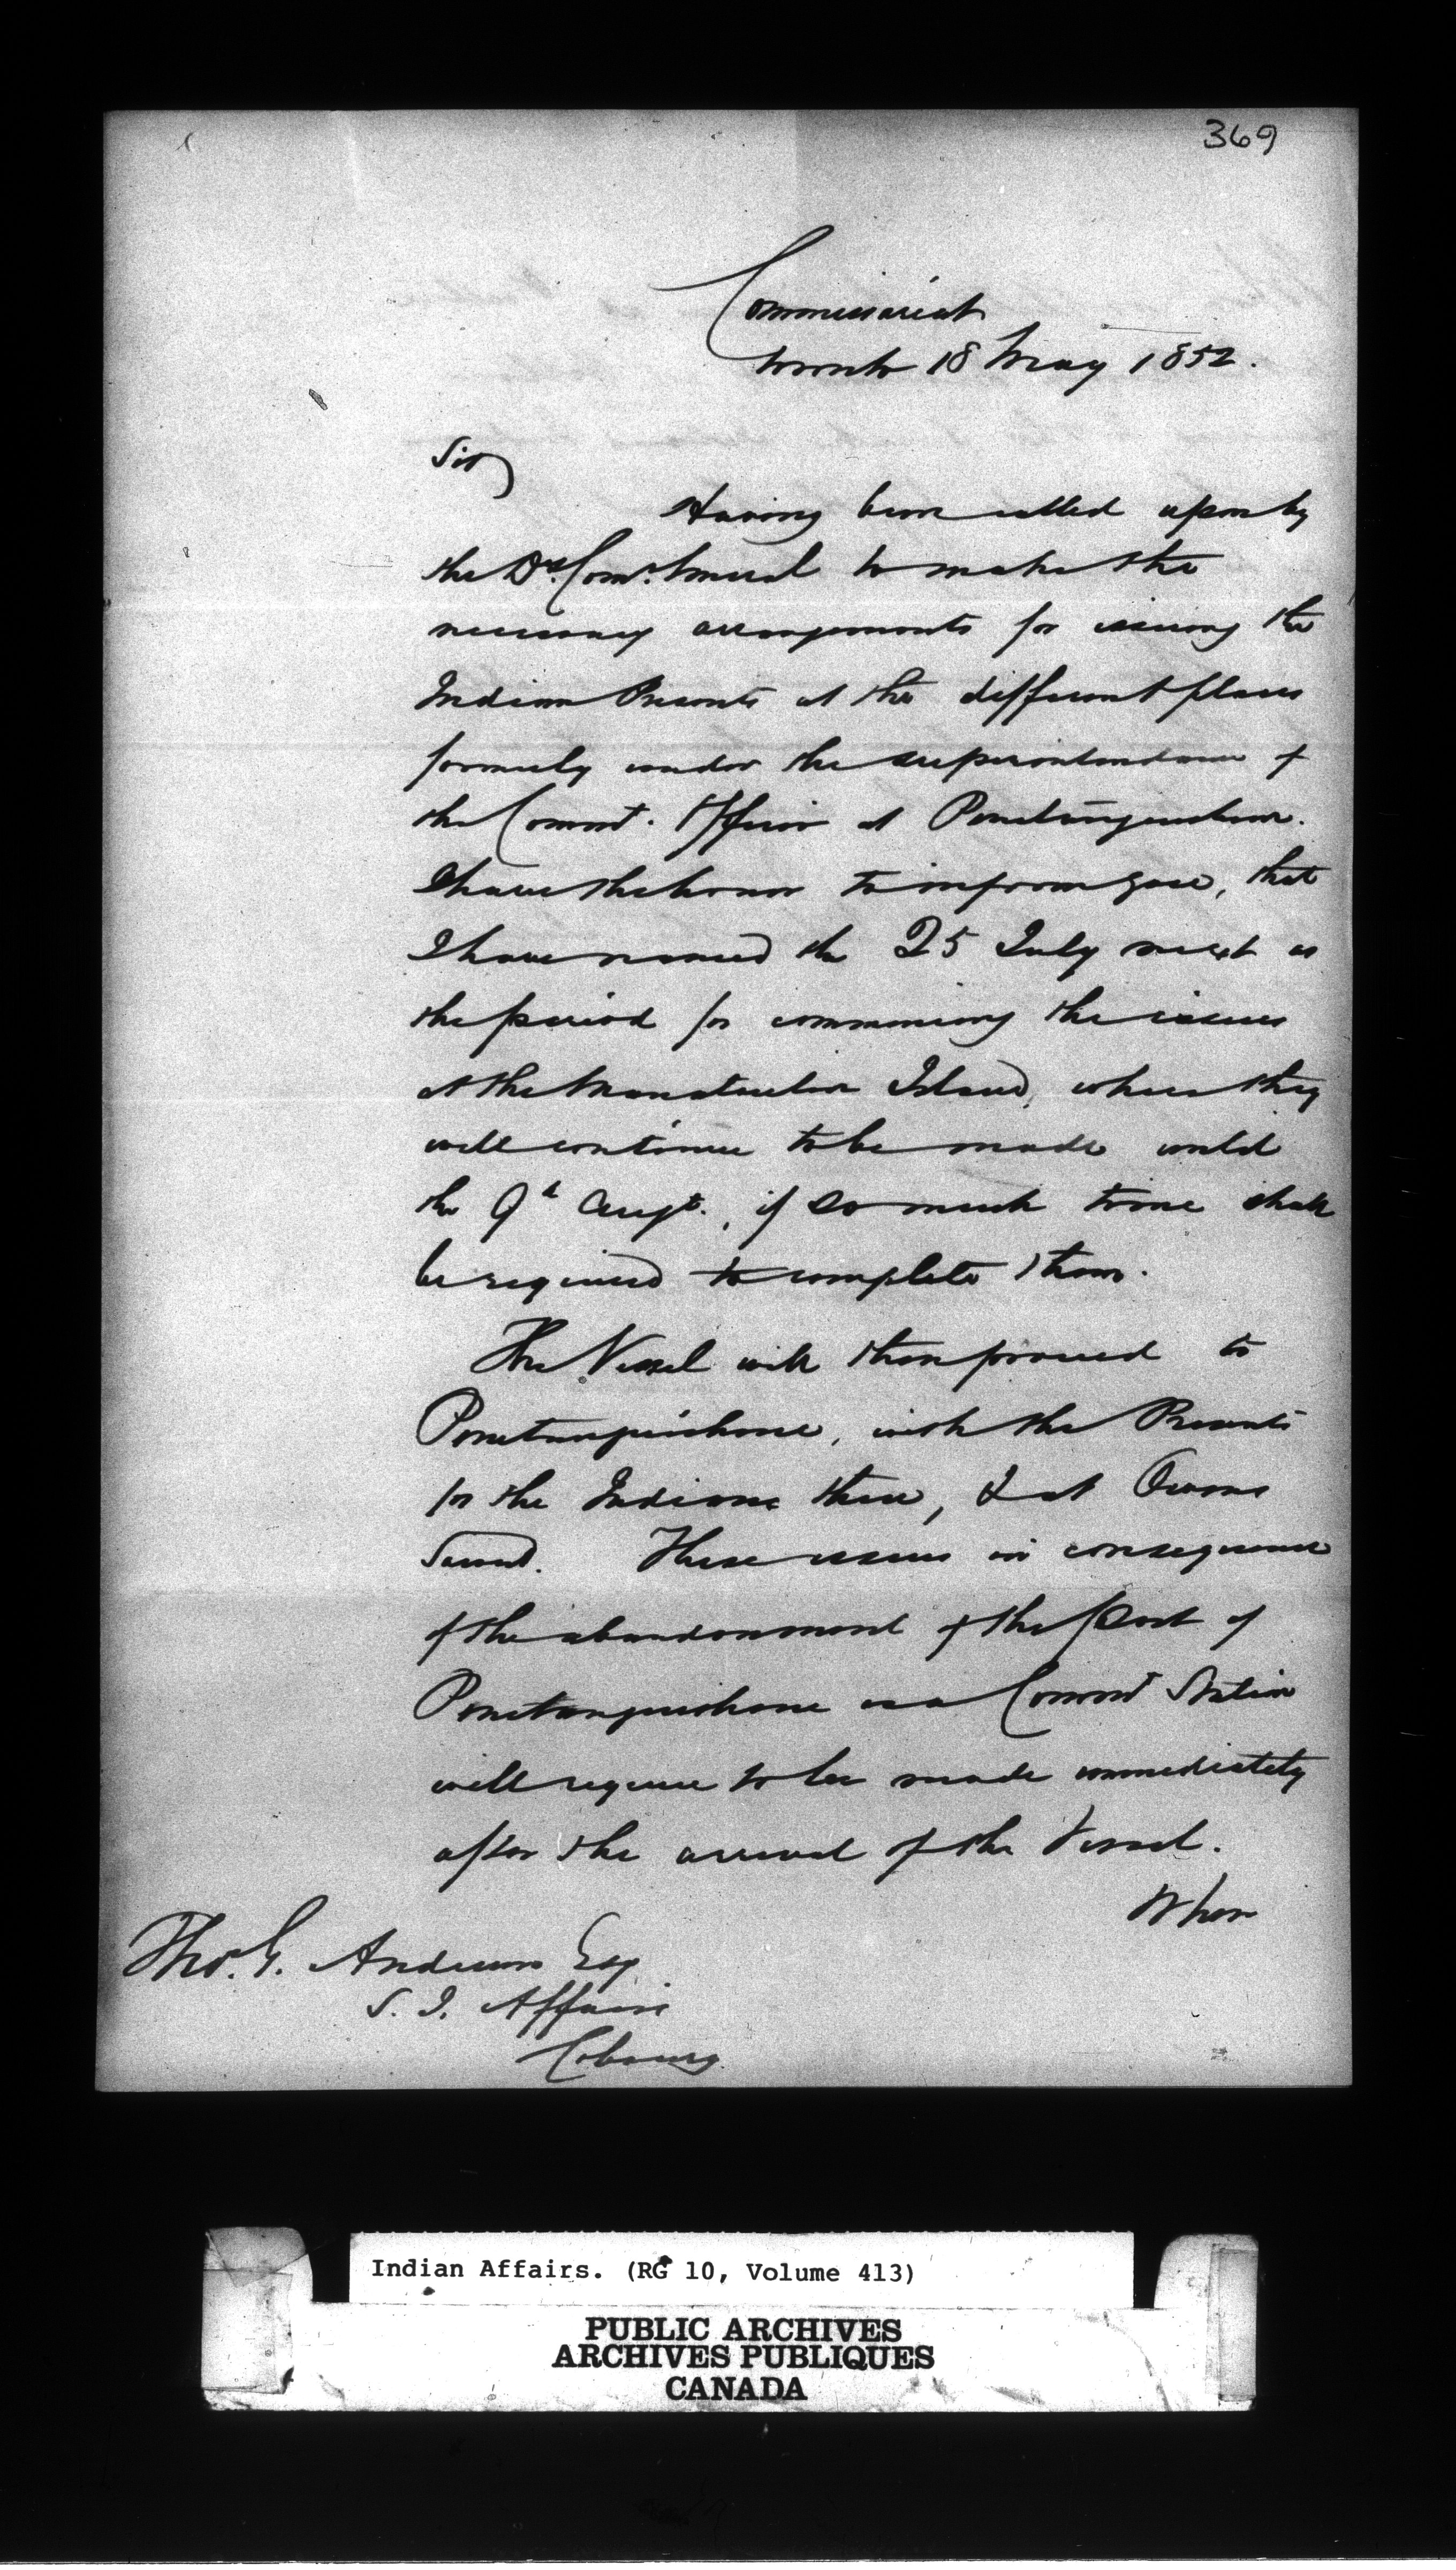 369
Commissariat
Toronto 18 May 1852.
Sir,
Having been called upon by
the Dy. Comy. General to make the
necessary arrangements for issuing the
Indian Presents at the different places
formerly under the superintendence of
the Commt. Officer at Penetanguishene.
I have the honor to inform you, that
I have named the 25 July next as
the period for commencing the issues
at the Manatoulin Island, where they
will continue to be made until
the 9th Augt., if so much time shall
be required to complete them.
The Vessel will then proceed to
Penetanguishene, with the Presents
for the Indians there, & at Owens
Sound. These issues in consequence
of the abandonment of the Post of
Penetanguishene as a Commt Station
will require to be made immediately
after the arrival of the Vessel.
When
Thos. G. Anderson Esq
S. I. Affairs
Cobourg
Indian Affairs. (RG 10, Volume 413)
PUBLIC ARCHIVES
ARCHIVES PUBLIQUES
CANADA